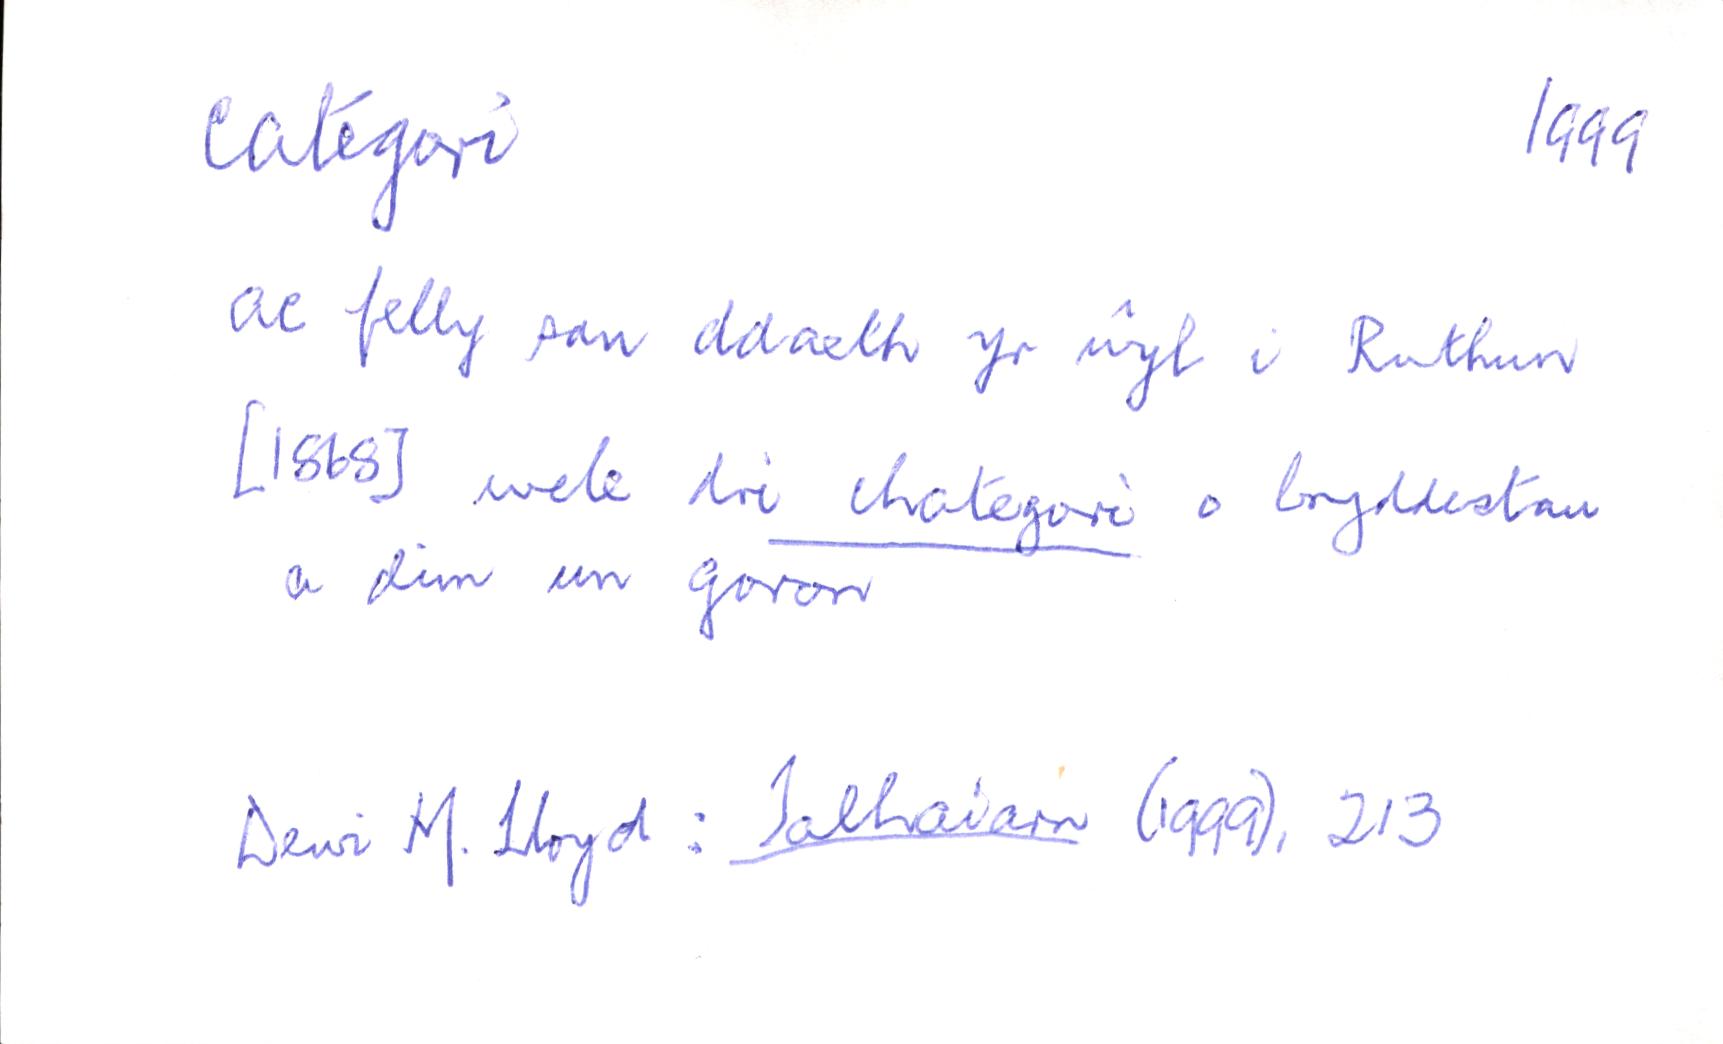 categori 1999
ac felly pan ddaeth yr ŵyl i Ruthun
[1868] wele dri chategori o bryddestau
a dim un goron
Dewi M. Lloyd : Talhaiarn (1999), 213